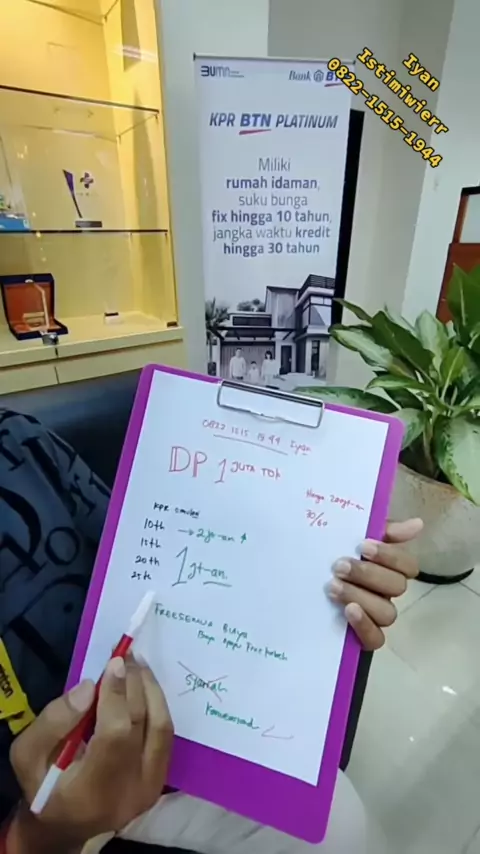 Iyan
Istimiwierr
0822-1515-1944
BUMN
Bank BTN
KPR BTN PLATINUM
Miliki
rumah idaman,
suku bunga
fix hingga 10 tahun,
jangka waktu kredit
hingga 30 tahun
0822 1515 1944 Iyan
DP 1 JUTA TOK
Harga 200jt-an
30/60
KPR
10th → 2jt-an
15th
20th 1jt-an
25th
FREE SEMUA BIAYA
Biaya Free
Syariah